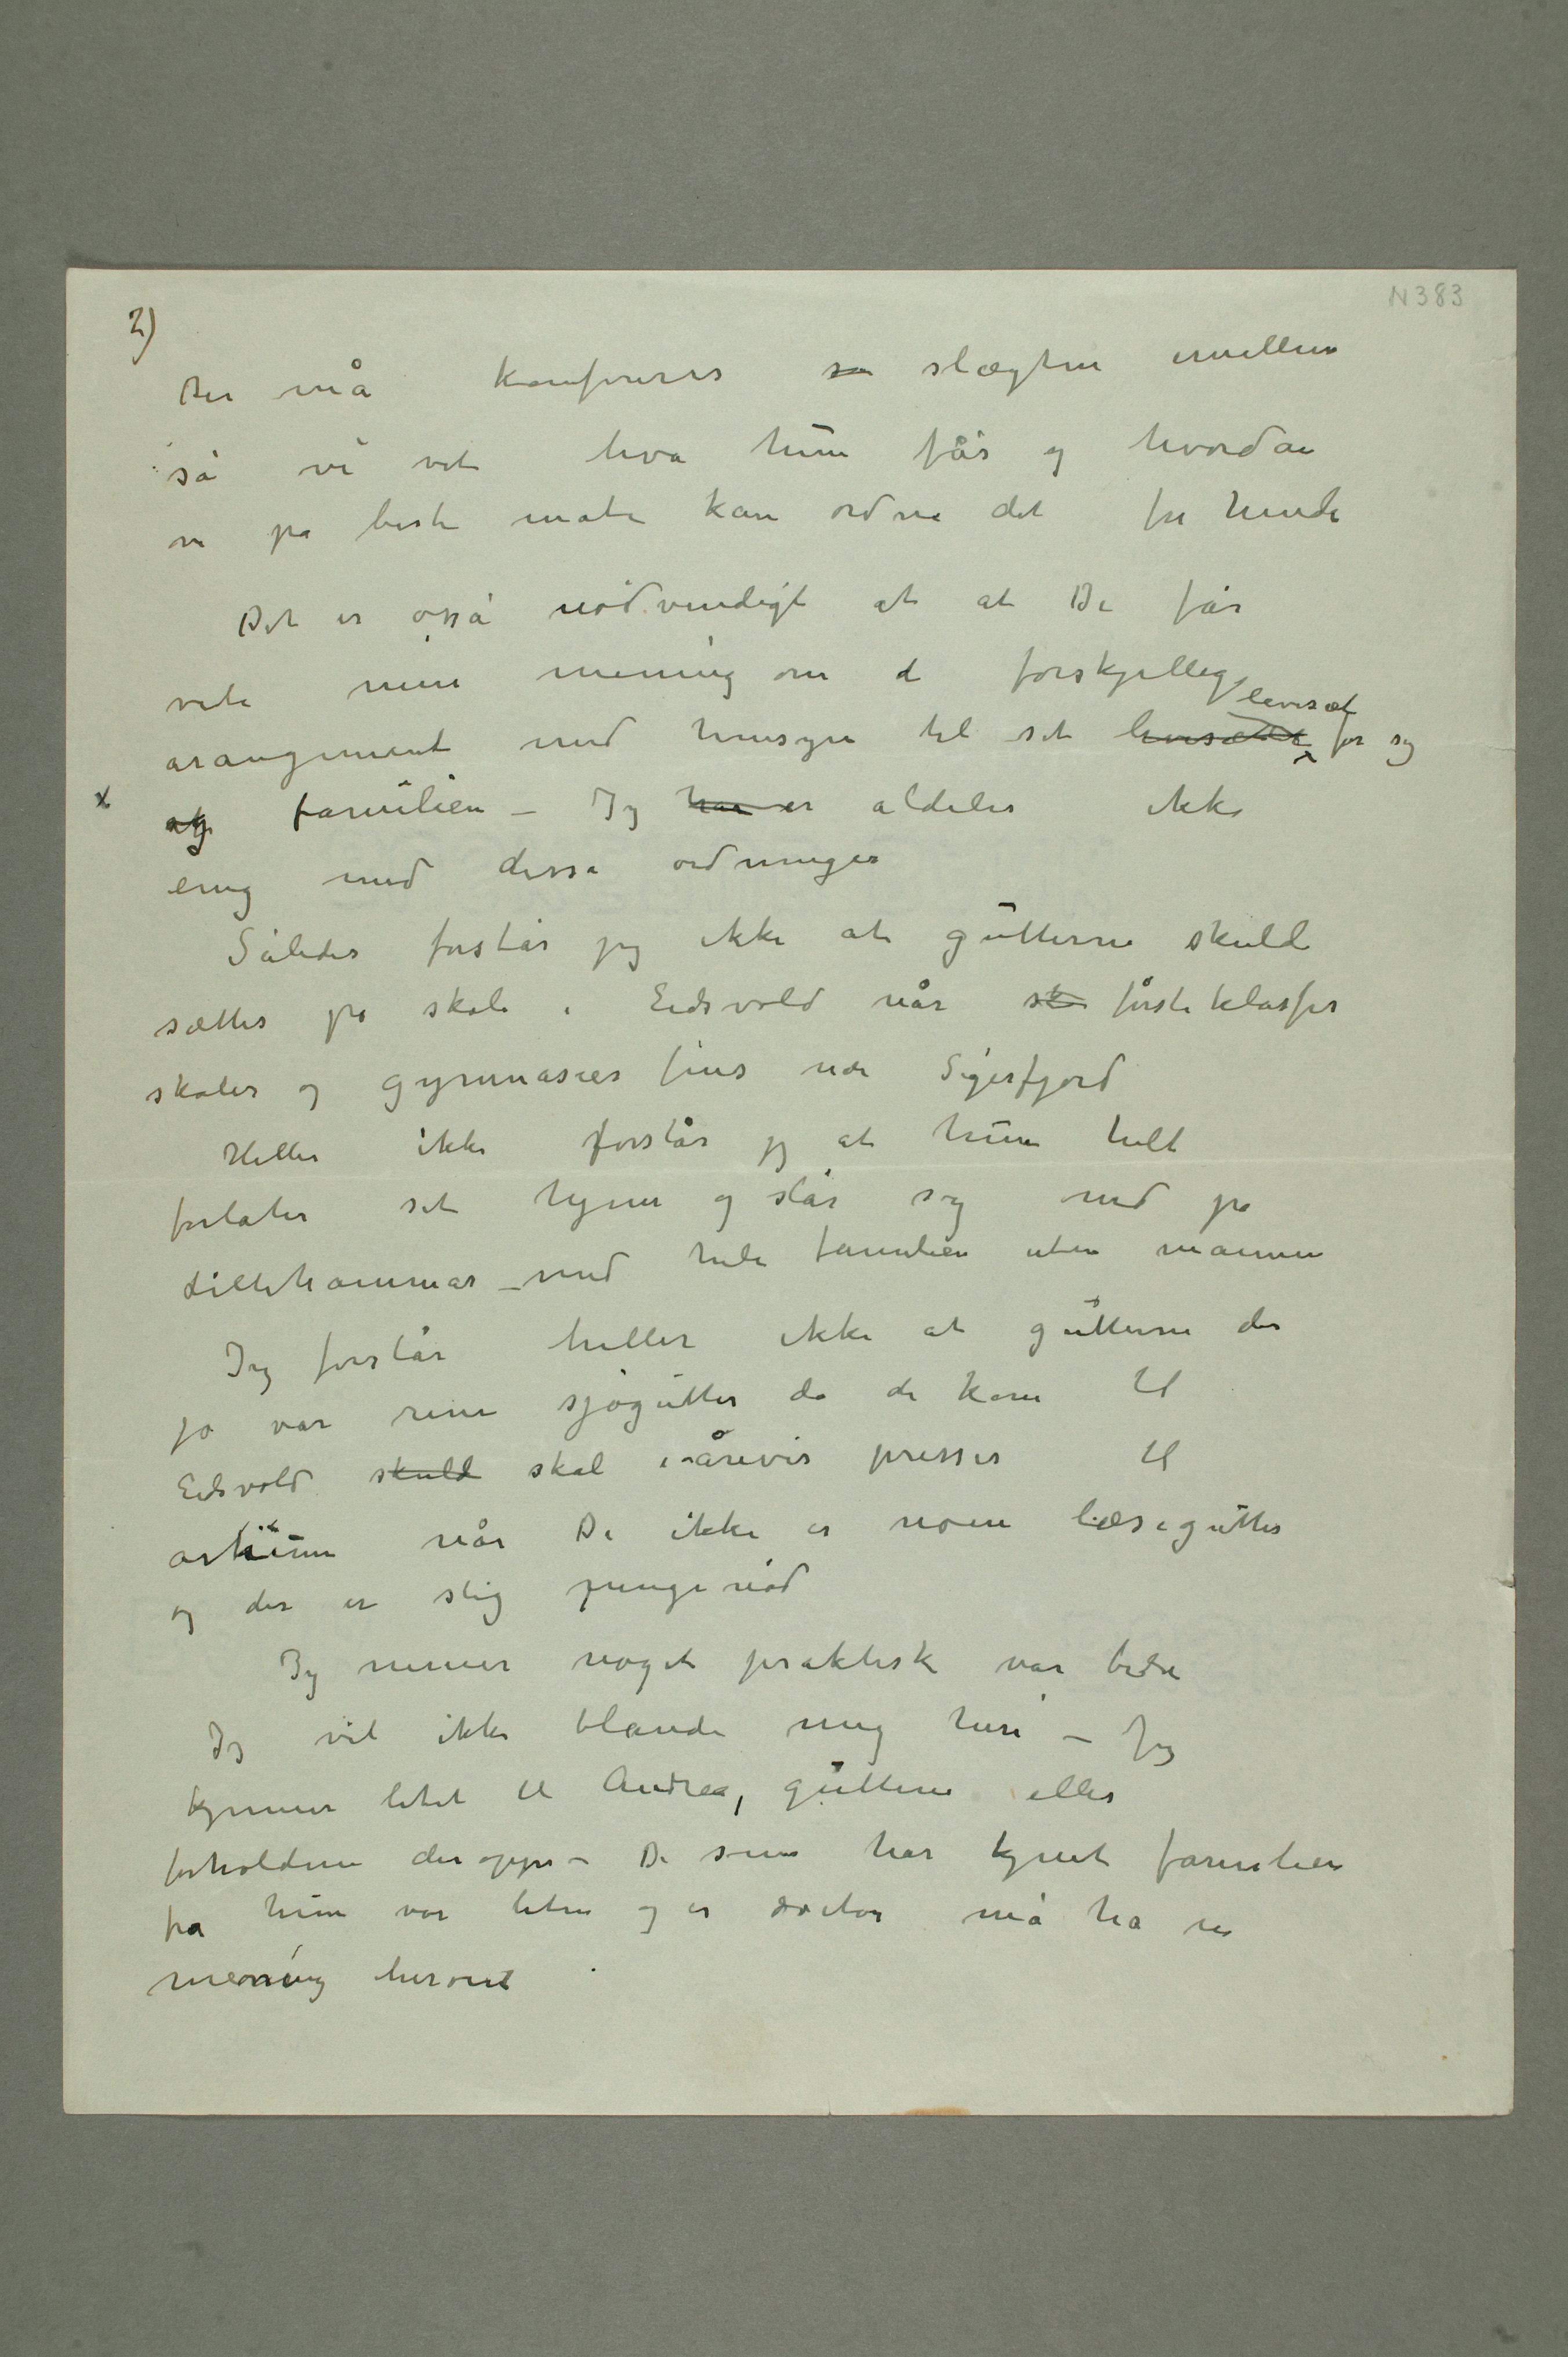 N 383
2)
Der må konfereres sa slægten imellem
så vi vet hva hun får og hvordan
vi på beste måte kan ordne det for hende
Det er også nødvendigt at at De får
vite min mening om de forskjellige
levesæt
arangement med hensyn til sit levesætte for sig
x og familien – Jeg har er aldeles ikke
enig med disse ordninger
Således forstår jeg ikke at gutterne skulde
sættes på skole i Eidsvold når sk förste klasses
skoler og gymnasier fins nær Sigerfjord
Heller ikke forstår jeg at hun helt
forlater sit hjem og slår sig ned på
Lillehammer – med hele familien uten mannen
Jeg forstår heller ikke at gutterne der
jo var rene sjøgutter da de kom til
Eidsvold skulde skal i årevis presses til
artium når De ikke er noen læsegutter
og der er slig pengenød
Jeg mener noget praktisk var bedre
Jeg vil ikke blande mig heri – Jeg
kjenner litet til Andrea, gutterne eller
forholdene deroppe – De som har kjent familien
fra hun var liten og er doctor må ha en
mening herom